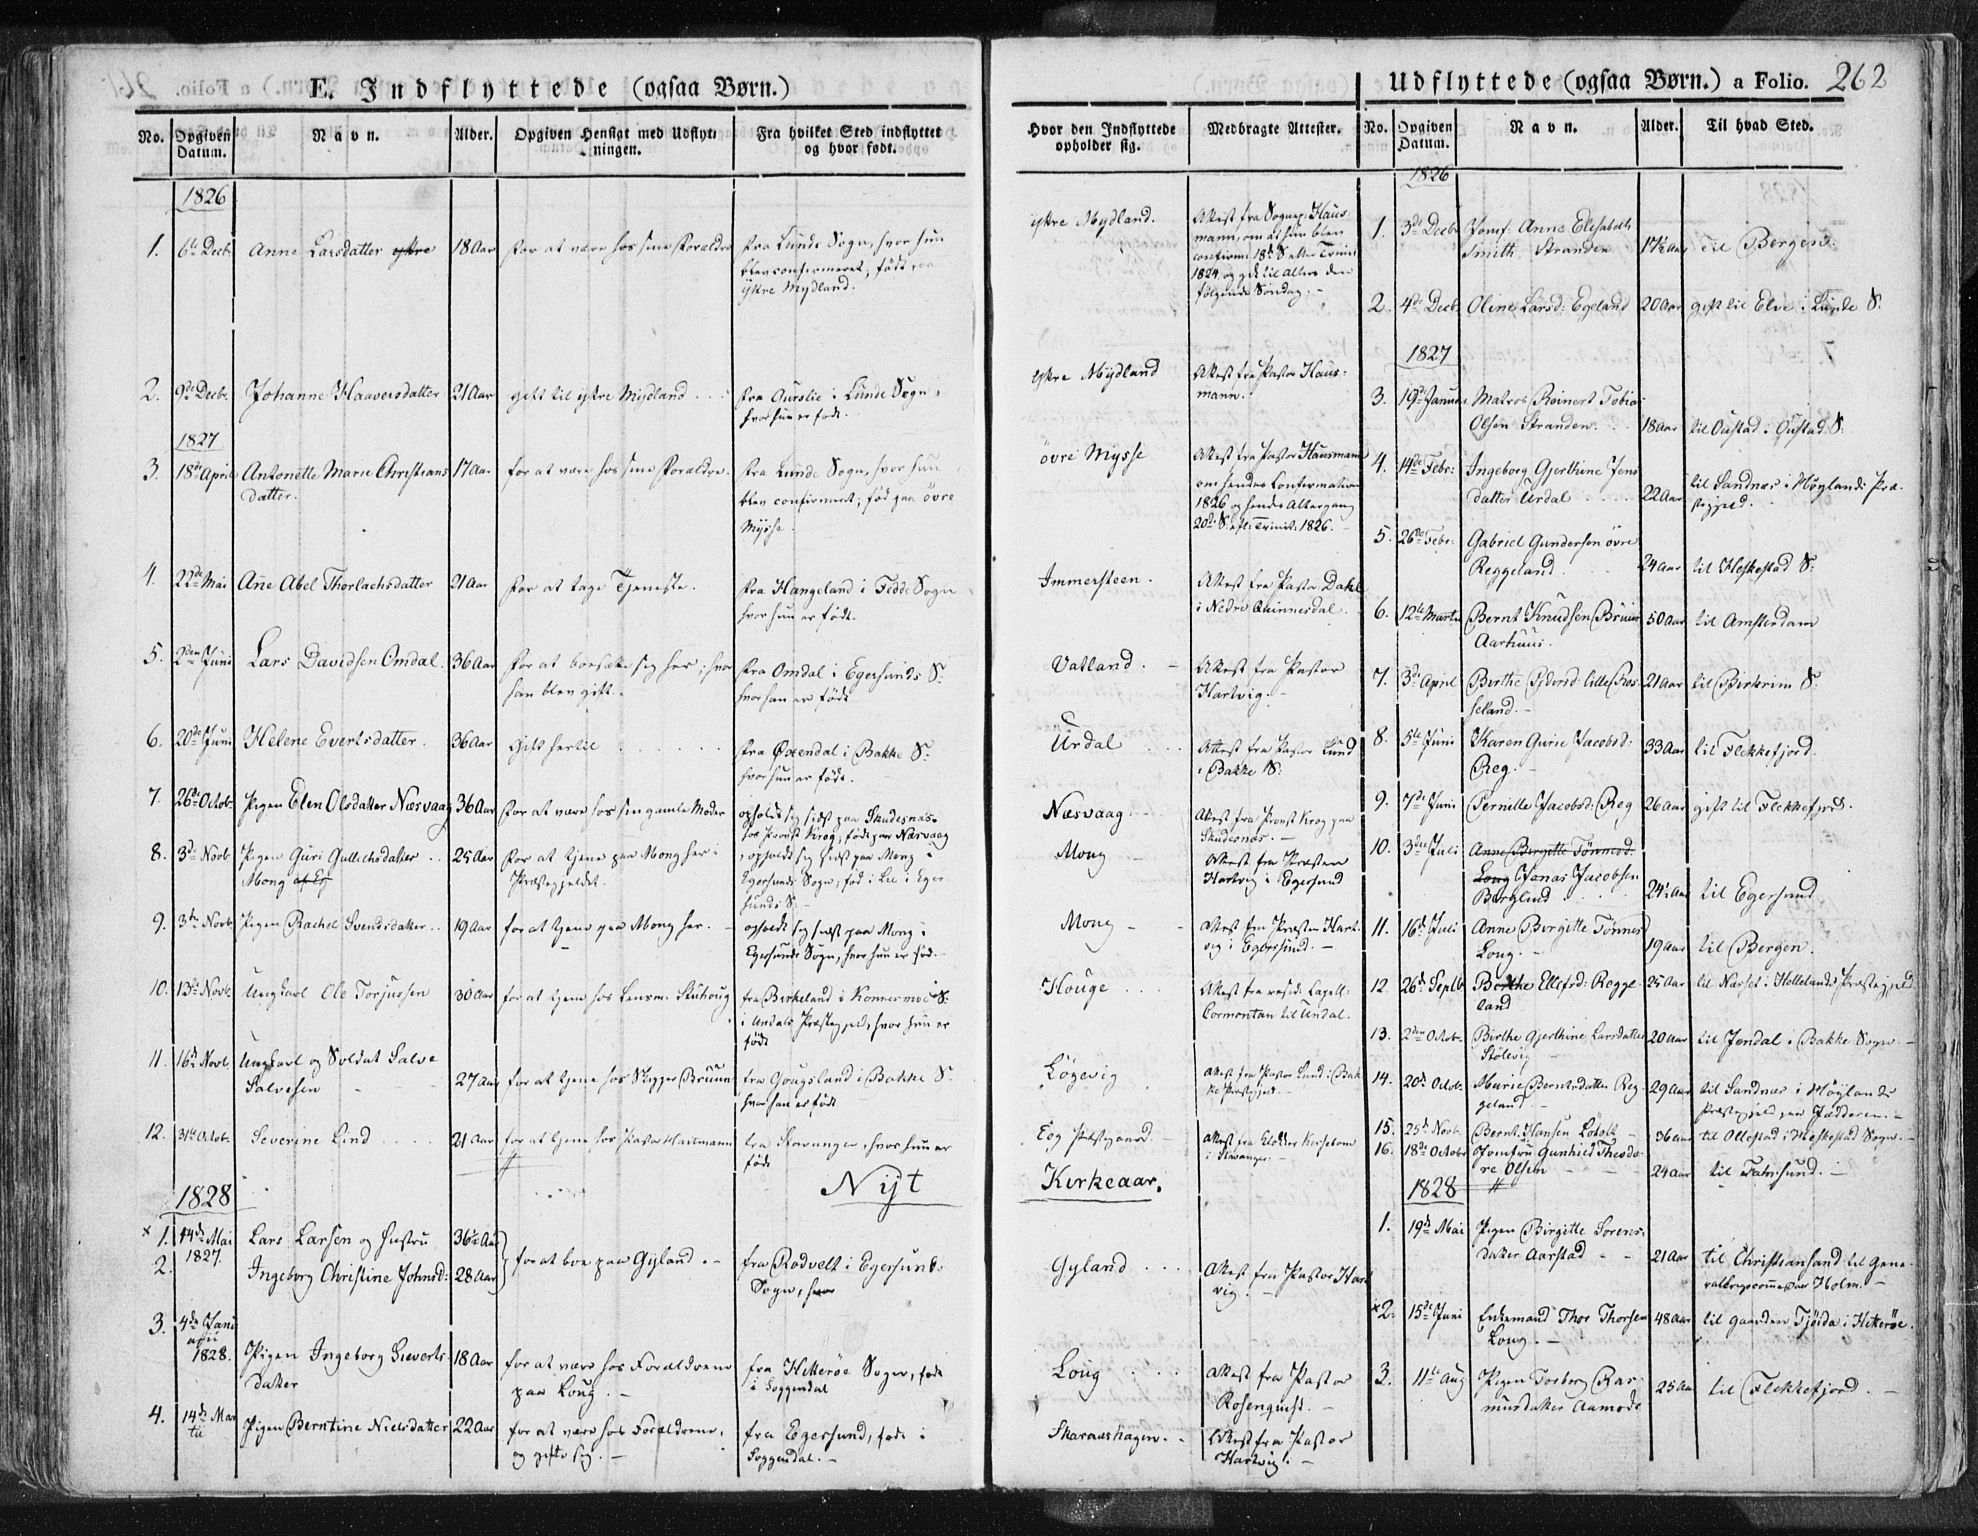 E. Indflyttede (ogsaa Børn.)
No.
Opgiven Datum.
Navn.
Alder.
Opgiven Hensigt med Udflytningen.
Fra hvilket Sted indflyttet og hvor født.
1826
1. 6te Decb. Anne Larsdatter ystre 18 Aar for at være hos sine Forældre
fra Lunde Sogn, hvor hun
blev confirmeret; født paa
ystre Mydland.
2. 9de Decbr. Johanne Haaversdatter 21 Aar gift til ystre Mydland
fra Aurslie i Lunde Sogn,
hvor hun er født.
1827
3. 18de April Antonette Marie Christians
datter. 17 Aar for at være hos sine Forældre.
fra Lunde Sogn, hvor hun
blev confirmert; fød paa övre
Mysse.
4. 22de Mai Ane Abel Thorlachsdatter 21 Aar for at tage Tjeneste.
fra Hangeland i Fedde Sogn
hvor hun er født.
5. 2den Juni Lars Davidsen Omdal. 36 Aar for at bosætte sig her; hvor
han blev gift.
fra Omdal i Egersunds S.
hvor han er født
6. 20de Juni Helene Evertsdatter. 36 Aar Gift hertil
fra Øxendal i Bakke S.
hvor hun er født.
7. 26de Octob. Pigen Elen Olsdatter Næsvaag 36 Aar for at være hos sin gamle Moder
opholdt sig sidst paa Skudesnæs
hos Provst Krog, født paa Næsvaag
8. 3de Novb Pigen Guri Gullichsdatter
Mong 25 Aar for at tjene paa Mong her i
Præstegjeldet.
opholdt sig sidst paa Mong i
Egersunds Sogn, fød i Lee i Eger
sunds S.
9. 3de Novb. Pigen Rachel Svendsdatter 19 Aar for at tjene paa Mong her.
opholdt sig sidst paa Mong i
Egersunds Sogn, hvor hun er fød.
10. 13de Novb. Ungkarl Ole Torjussen 30 Aar for at tjene hos Lensm. Stuhoug
fra Birkeland i Konnesmoe S.
i Undals Præstegjeld, hvor hun er
født
11. 16de Novb. Ungkarl og Soldat Salve
Salvesen 27 Aar for at tjene hos Skipper Bruun
fra Gougsland i Bakke S.
hvor han er født
12. 31te Octob. Severine Lind 21 Aar for at tjene hos Pastor Hartmann
fra Stavanger, hvor hun er
født
1828
Nyt
x 1. 14de Mai 1827. Lars Larsen og Hustru 36½ Aar
2. Ingeborg Christine Johnsd: 28 Aar
for at boe paa Gyland.
fra Rodvelt i Egersund
Sogn, hvor
3. 4de Januarii 1828. Pigen Ingeborg Sieverts
datter 18 Aar for at være hos Forældrene
paa Loug.
fra Hitterøe Sogn, født
i Soggendal
4. 14de Martii Pigen Berntine Nielsdatter 22 Aar for at være hos Forældrene,
og gifte sig.
fra Egersund, født i
Soggendal.
Hvor den Indflyttede opholder sig.
Medbragte Attester.
ystre Mydland. Attest fra Sognep: Haus
mann, om at hun blev
confirm: 18de S. efter Trinit:
1824 og gik til Alters den
følgende Søndag.
ystre Mydland Attest fra Pastor Haus:
mann.
övre Mysse Attest fra Pastor Hausmann
om hendes Confirmation
1826 og hendes Altergang
20de S. eft: Trinit: 1826.
Immersteen. Attest fra Pastor Dahl
i Nedre Quinnesdal.
Vatland. Attest fra Pastor
Hartvig.
Urdal Attest fra Pastor Lund
i Bakke S.
Næsvaag Attest fra Provst Krog paa
Skudesnæs.
Mong Attest fra Præsten
Hartvig i Egersund
Mong Attest fra Præsten Hart
vig i Egersund.
Houge Attest fra resid: Capell:
Cormontan til Undal.
Løgevig Attest fra Pastor Lund i Bak
ke Præstegjeld.
Eog Præstegaard. Attest fra Klokker
i Stavanger.
Kirkeaar.
Gyland Attest fra Pastor Hart
vig.
Loug Attest fra Pastor
Rosenquist.
Skaraashagen. Attest fra Pastor
Hartvig.
Udflyttede (ogsaa Børn.) a Folio. 262
No.
Opgiven Datum.
Navn.
Alder.
Til hvad Sted.
1826
1. 3de Decb Jomf: Anne Elisabeth
Smith. Stranden 17½ Aar til Bergen.
2. 4de Decb. Oline Larsd: Egeland 20 Aar gift til Elve i Lunde S.
1827
3. 19de Januar Matros Reinert Tobias
Olsen Stranden. 18 Aar til Oustad i Oustad S:
4. 14de Febr: Ingeborg Gjerthine Jens
datter Urdal 22 Aar til Sandnæs i Høylands Præ
stegjeld.
5. 26de Febr: Gabriel Gundersen övre
Reggeland. 24 Aar til Heskestad S:
6. 12te Marts Bernt Knudsen Bruun
Aarhuus. 50 Aar til Amsterdam
7. 3de April Birthe Pedersd: lille Ros
seland. 21 Aar til Birkrim S:
8. 5te Juni Karen Gurie Jacobsd:
Reg. 33 Aar til Flekkefjord.
9. 7de Juni Pernille Jacobsd: Reg 26 Aar gift til Flekkefjord.
10. 3die Juli Anne Birgitte Tönnesd:
Loug Jonas Jacobsen
Berglund 24½ Aar til Egersund
11. 16de Juli Anne Birgitte Tönnesd
Loug. 19 Aar til Bergen.
12 26de Septb Berthe Ellefsd: Regge
land 25 Aar til Næsset i Hollelands Præstegjeld.
13. 2den Octob. Birthe Gjerthine Larsdatter
Stölevig 20 Aar til Jendal i Bakke Sogn
14. 20de Octob. Marie Berntsdatter Reg
geland. 29 Aar til Sandnæs i Høylands
Præstegjeld paa Jædderen.
15. 25de Novb. Bernt Hansen 36 Aar til Ollestad i Heskestad Sogn.
16. 18de Octobr Jomfru Gunhild Theodo
re Olsen 24 Aar til Farsund.
1828
1. 19de Mai Pigen Birgitte Sorens
datter Aarstad 21 Aar til Christiansand til Gene
ralkrigscommissair Holm.
x 2. 15de Juni Enkemand Thor Thorsen
Loug. 48 Aar til gaarden Tjöida i Hitterøe.
3. 11te Aug Pigen Torborg Ras
musdatter Aamodt 25 Aar til Flekkefjord.